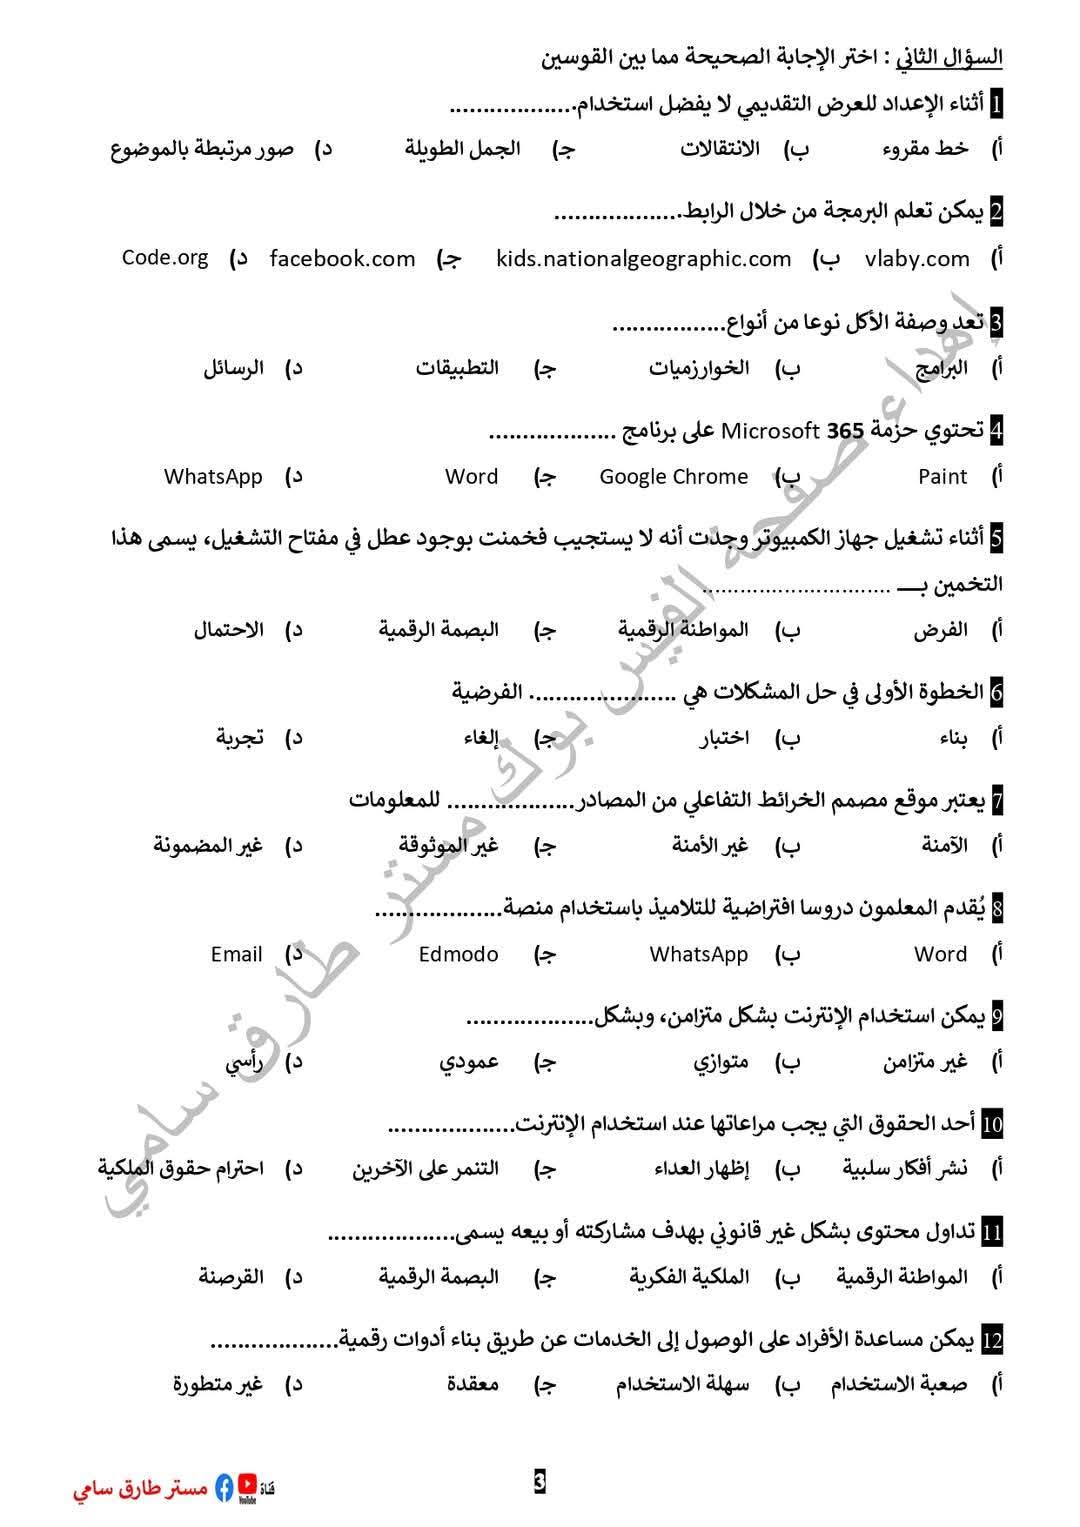 السؤال الثاني : اختر الإجابة الصحيحة مما بين القوسين
1 أثناء الإعداد للعرض التقديمي لا يفضل استخدام..................
أ) خط مقروء ب) الانتقالات ج) الجمل الطويلة د) صور مرتبطة بالموضوع
2 يمكن تعلم البرمجة من خلال الرابط..................
أ) vlaby.com ب) kids.nationalgeographic.com ج) facebook.com د) Code.org
3 تعد وصفة الأكل نوعا من أنواع.................
أ) البرامج ب) الخوارزميات ج) التطبيقات د) الرسائل
4 تحتوي حزمة Microsoft 365 على برنامج ...................
أ) Paint ب) Google Chrome ج) Word د) WhatsApp
5 أثناء تشغيل جهاز الكمبيوتر وجدت أنه لا يستجيب فخمنت بوجود عطل في مفتاح التشغيل، يسمى هذا
التخمين بــــ ..............................
أ) الفرض ب) المواطنة الرقمية ج) البصمة الرقمية د) الاحتمال
6 الخطوة الأولى في حل المشكلات هي ...................... الفرضية
أ) بناء ب) اختبار ج) إلغاء د) تجربة
7 يعتبر موقع مصمم الخرائط التفاعلي من المصادر................... للمعلومات
أ) الآمنة ب) غير الأمنة ج) غير الموثوقة د) غير المضمونة
8 يُقدم المعلمون دروسا افتراضية للتلاميذ باستخدام منصة...................
أ) Word ب) WhatsApp ج) Edmodo د) Email
9 يمكن استخدام الإنترنت بشكل متزامن، وبشكل...................
أ) غير متزامن ب) متوازي ج) عمودي د) رأسي
10 أحد الحقوق التي يجب مراعاتها عند استخدام الإنترنت...................
أ) نشر أفكار سلبية ب) إظهار العداء ج) التنمر على الآخرين د) احترام حقوق الملكية
11 تداول محتوى بشكل غير قانوني بهدف مشاركته أو بيعه يسمى...................
أ) المواطنة الرقمية ب) الملكية الفكرية ج) البصمة الرقمية د) القرصنة
12 يمكن مساعدة الأفراد على الوصول إلى الخدمات عن طريق بناء أدوات رقمية...................
أ) صعبة الاستخدام ب) سهلة الاستخدام ج) معقدة د) غير متطورة
إهداء صفحة الفيس بوك مستر طارق سامي
3
قناة YouTube مستر طارق سامي